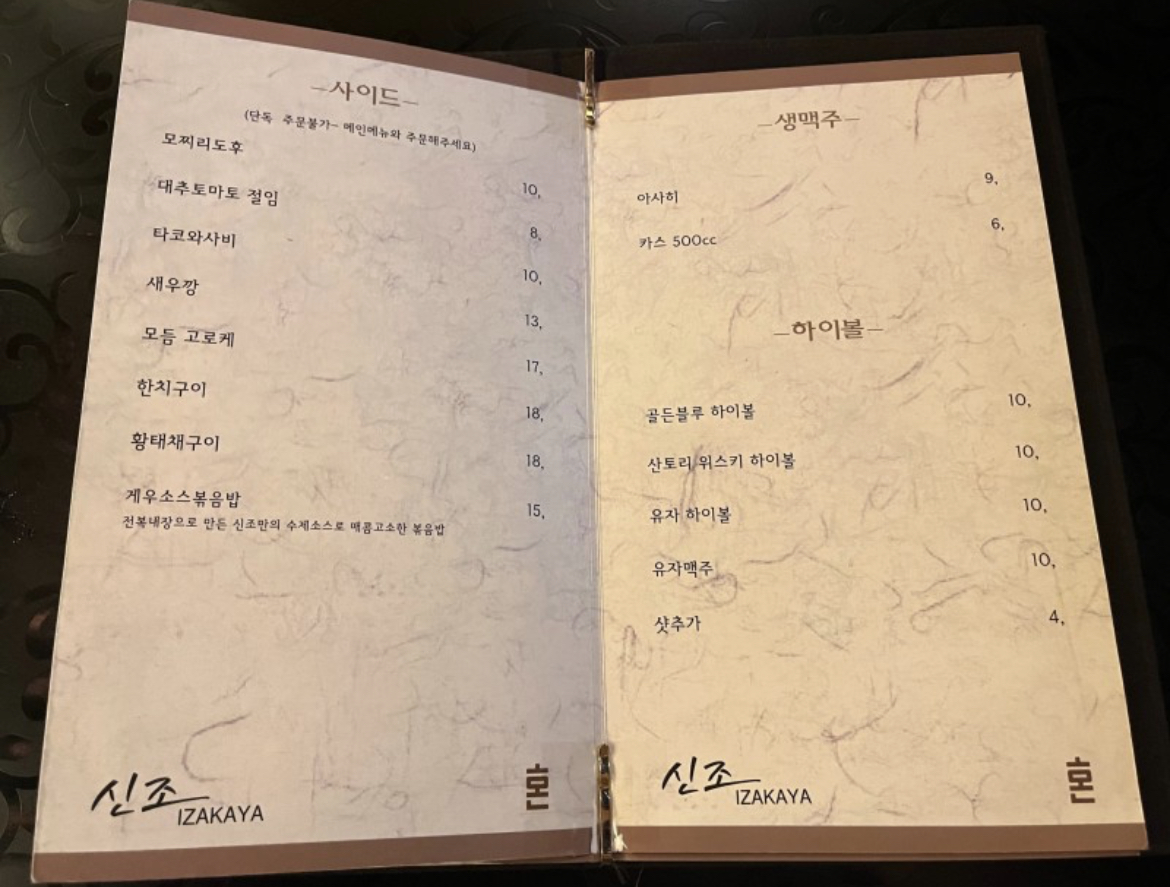 사이드
(단독 주문불가- 메인메뉴와 주문해주세요)
모찌리도후 10,
대추토마토 절임 8,
타코와사비 10,
새우깡 13,
모듬 고로케 17,
한치구이 18,
황태채구이 18,
게우소스볶음밥 15,
전복내장으로 만든 신조만의 수제소스로 매콤고소한 볶음밥
신조 IZAKAYA
혼
생맥주
아사히 9,
카스 500cc 6,
하이볼
골든블루 하이볼 10,
산토리 위스키 하이볼 10,
유자 하이볼 10,
유자맥주 10,
샷추가 4,
신조 IZAKAYA
혼